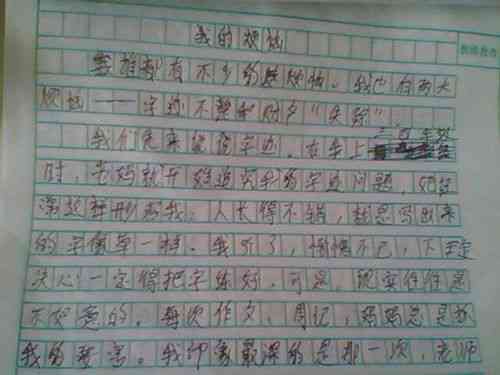 我的烦恼
谁都有不少的烦恼。我也有两大
烦恼——字迹不整和财产“失踪”
我们先来说说字迹。在我上三四年级
时，爸妈就开始追究我的字迹问题，
常这样形容我：人长得不错，就是写出来
的字像草一样。我听了，惭愧不已，下定
决心一定得把字练好。可是，现实往往是
不如意的。每次作文、周记，妈妈总是
我的要害。我印象最深的是那一次，老师